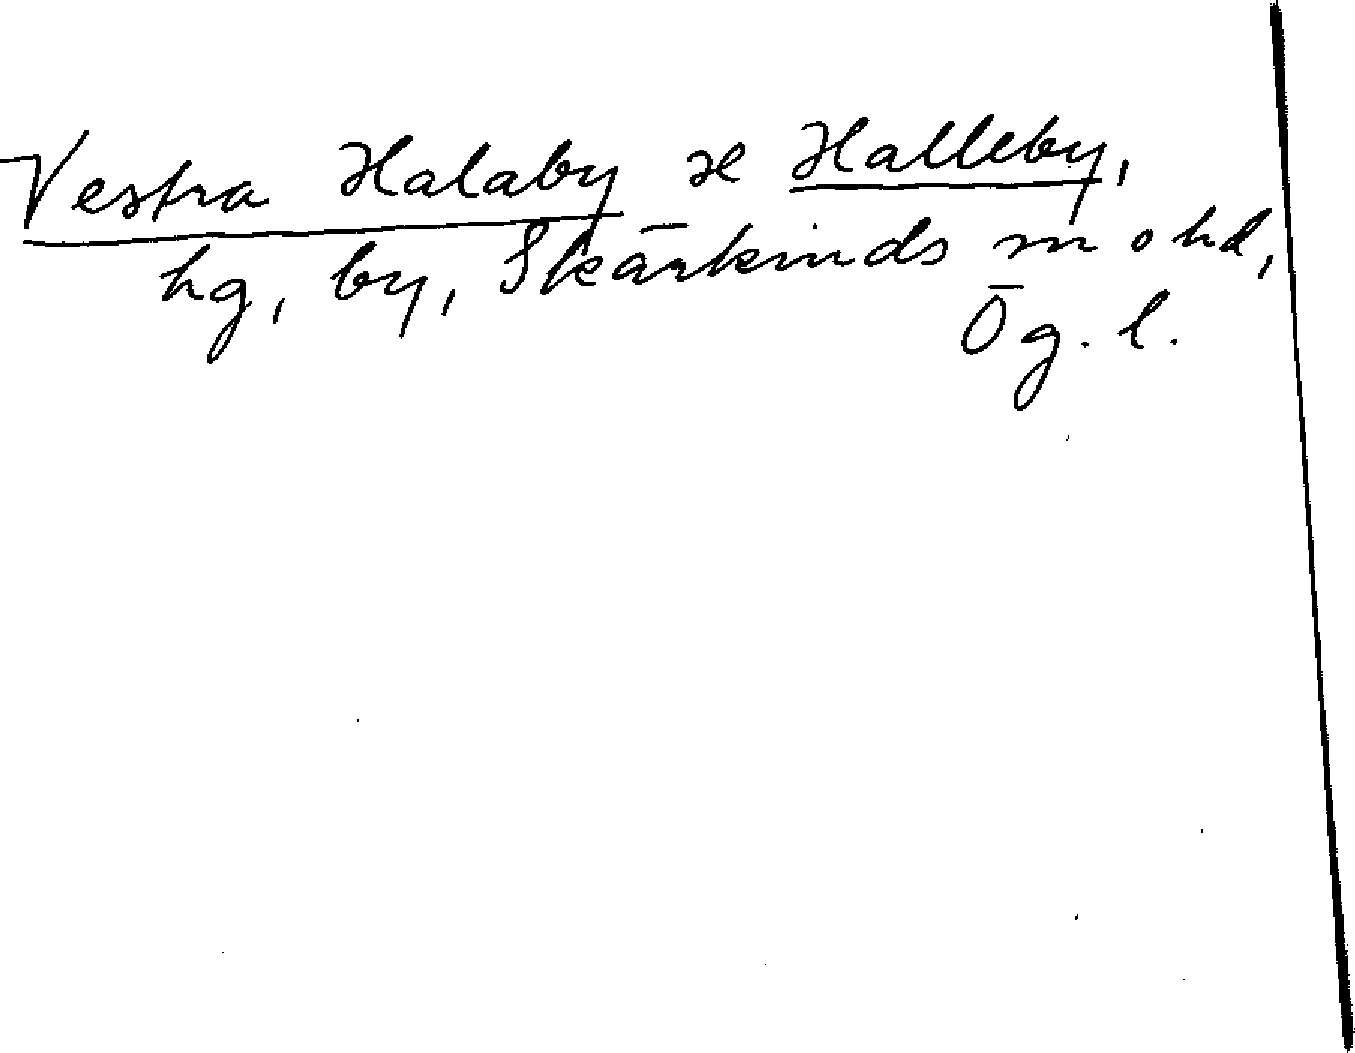 Vestra Halaby æ Halleby,
hg, by, Skärkinds sn o hd,
Ög. l.